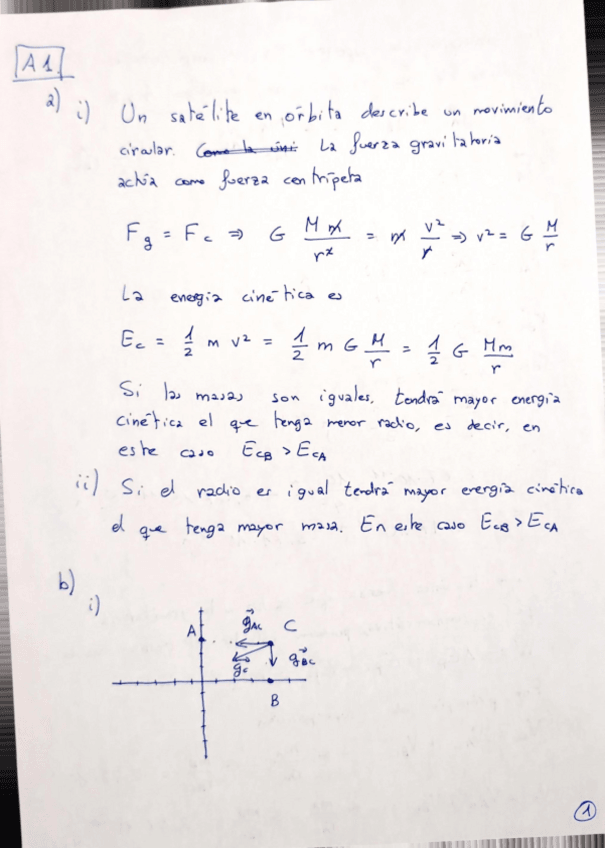 A1
a) i) Un satélite en órbita describe un movimiento
circular. Como la úni La fuerza gravitatoria
actúa como fuerza centrípeta
Fg = Fc ⇒ G Mm/r² = m v²/r ⇒ v² = G M/r
La energía cinética es
Ec = 1/2 m v² = 1/2 m G M/r = 1/2 G Mm/r
Si las masas son iguales, tendrá mayor energía
cinética el que tenga menor radio, es decir, en
este caso EcB > EcA
ii) Si el radio es igual tendrá mayor energía cinética
el que tenga mayor masa. En este caso EcB > EcA
b)
i)
A g⃗AC C
g⃗C g⃗BC
B
1